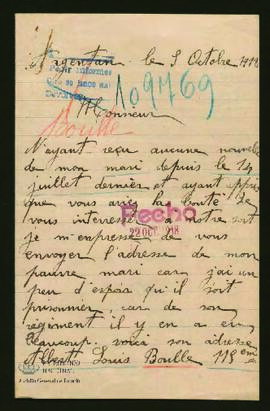 Argentan le 5 Octobre 1918
109769
Monsieur
Boulle
N'ayant reçu aucune nouvelle
de mon mari depuis le 14
juillet dernier et ayant appris
que vous aviez la bonté de
vous interesser à notre sort
je m'empresse de vous
Fecho
22 OCT. 918
envoyer l'adresse de mon
pauvre mari car j'ai un
peu d'espoir qu'il soit
prisonnier, car de son
régiment il y en a eu
beaucoup. voici son adresse
Albert Louis Boulle 118 em